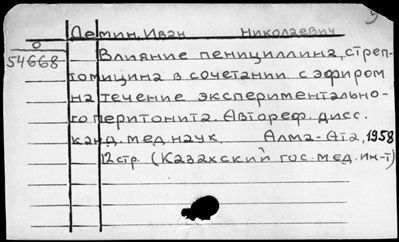 9
Демин, Иван Николаевич
0
54668
Влияние пенициллина, стреп-
томицина в сочетании с эфиром
на течение экспериментально-
го перитонита. Автореф. дисс.
канд. мед. наук. Алма-Ата, 1958
12 стр. (Казахский гос. мед. ин-т)